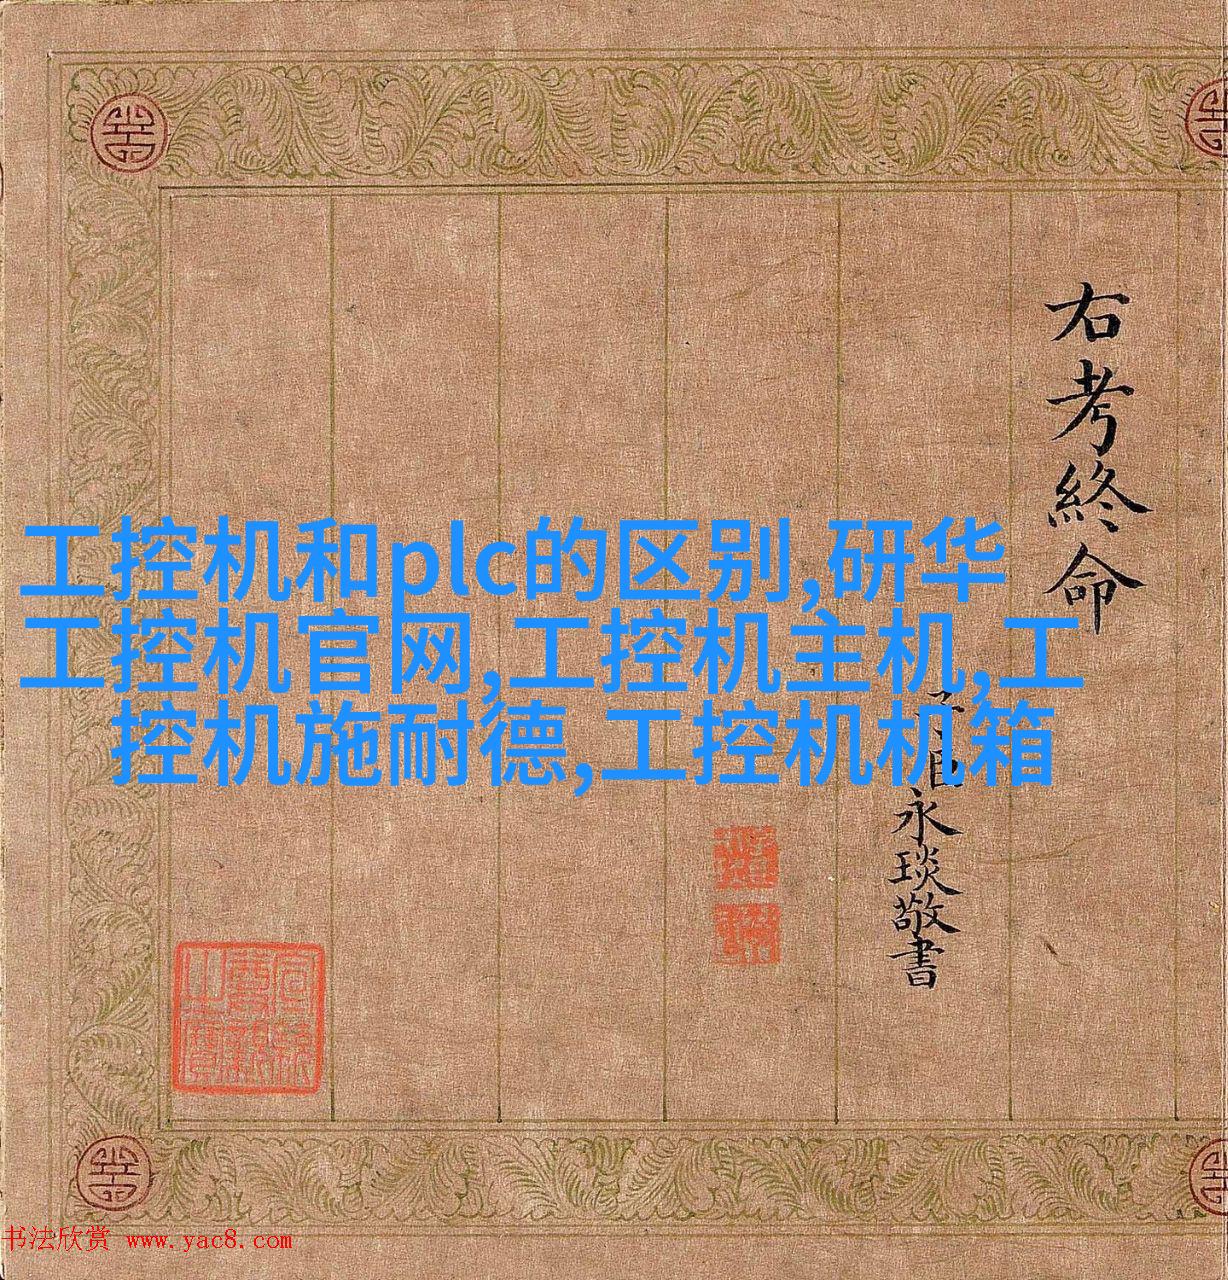 工控机和plc的区别,研华
工控机官网,工控机主机,工
控机施耐德,工控机机箱
右考終命
子臣永琰敬書
书法欣赏 www.yac8.com